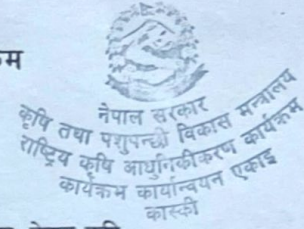 म
नेपाल सरकार
कृषि तथा पशुपन्छी विकास मन्त्रालय
राष्ट्रिय कृषि आधुनिकीकरण कार्यक्रम
कार्यक्रम कार्यान्वयन एकाइ
कास्की